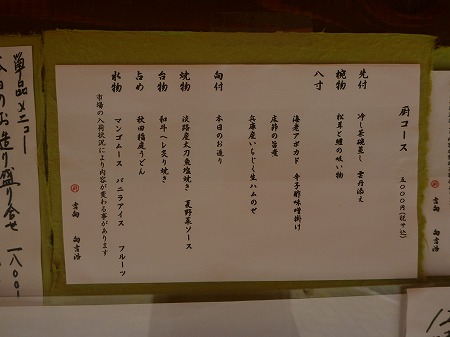 厨コース 五〇〇〇円(税サ込)
先付 冷し茶碗蒸し 雲丹添え
椀物 松茸と鱧の吸い物
八寸 海老アボカド 辛子酢味噌掛け
床節の旨煮
兵庫産いちじく生ハムのせ
向付 本日のお造り
焼物 淡路産太刀魚塩焼き 夏野菜ソース
台物 和牛ヘレ炙り焼き
占め 秋田稲庭うどん
水物 マンゴムース バニラアイス フルーツ
市場の入荷状況により内容が変わる事があります
単品メニュー
本日のお造り盛り合せ 一八〇〇